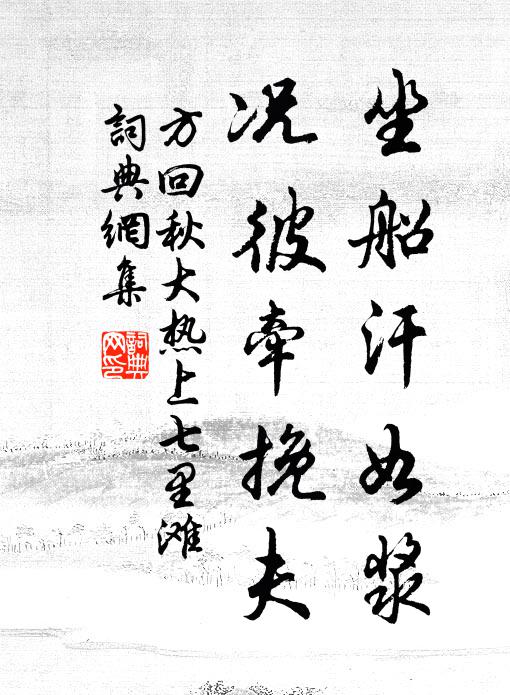 坐船汗如浆
况彼牵挽夫
方回秋大热上七里滩
詞典網集
詞典网印